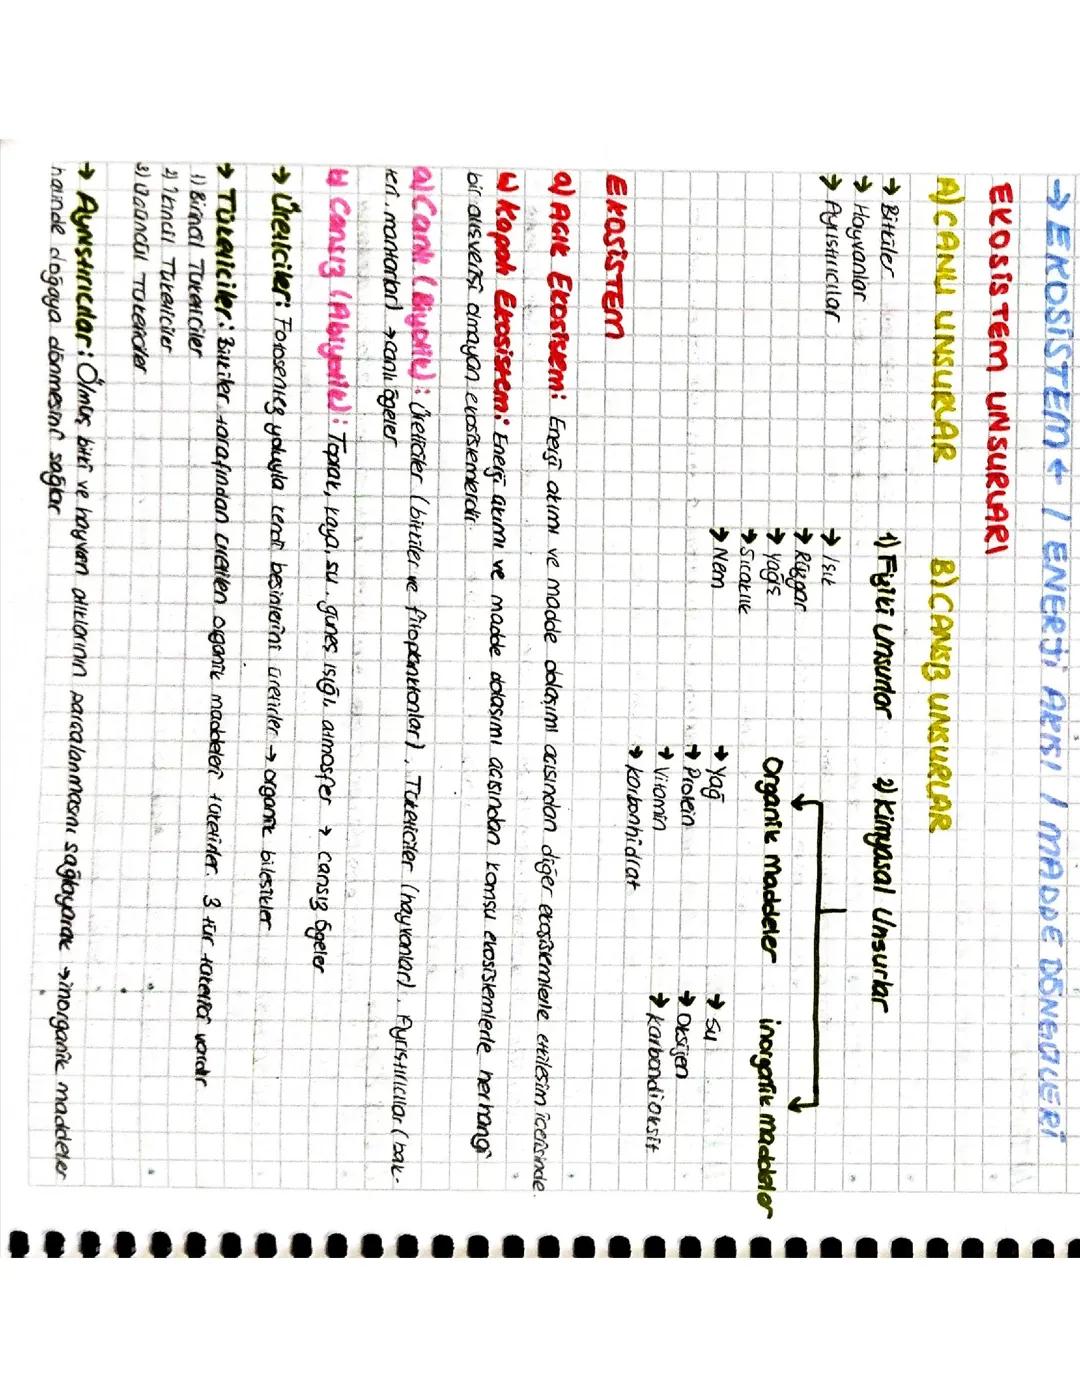 → EKOSİSTEM ← / ENERJİ AKIŞI / MADDE DÖNGÜLERİ
EKOSİSTEM UNSURLARI
A) CANLI UNSURLAR
→ Bitkiler
→ Hayvanlar
→ Ayrıştırıcılar
B) CANSIZ UNSURLAR
1) Fiziki Unsurlar
→ Işık
→ Rüzgar
→ Yağış
→ Sıcaklık
→ Nem
2) Kimyasal Unsurlar
Organik maddeler
→ Yağ
→ Protein
→ Vitamin
→ Karbonhidrat
inorganik maddeler
→ Su
→ Oksijen
→ Karbondioksit
EKOSİSTEM
a) Açık Ekosistem: Enerji akımı ve madde dolaşımı açısından diğer ekosistemlerle etkileşim içerisinde.
b) Kapalı Ekosistem: Enerji akımı ve madde dolaşımı açısından komşu ekosistemlerle herhangi
bir alışverişi olmayan ekosistemlerdir.
a) Canlı (Biyotik): Üreticiler (bitkiler ve fitoplanktonlar), Tüketiciler (hayvanlar), Ayrıştırıcılar (bak-
teri, mantarlar) → canlı ögeler
b) Cansız (Abiyotik): Toprak, kaya, su, güneş ışığı, atmosfer → cansız ögeler
→ Üreticiler: Fotosentez yoluyla kendi besinlerini üretirler → organik bileşikler
→ Tüketiciler: Bitkiler tarafından üretilen organik maddeleri tüketirler. 3 tür tüketici vardır
1) Birincil Tüketiciler
2) İkincil Tüketiciler
3) Üçüncül Tüketiciler
→ Ayrıştırıcılar: Ölmüş bitki ve hayvan atıklarının parçalanmasını sağlayarak → inorganik maddeler
halinde doğaya dönmesini sağlar